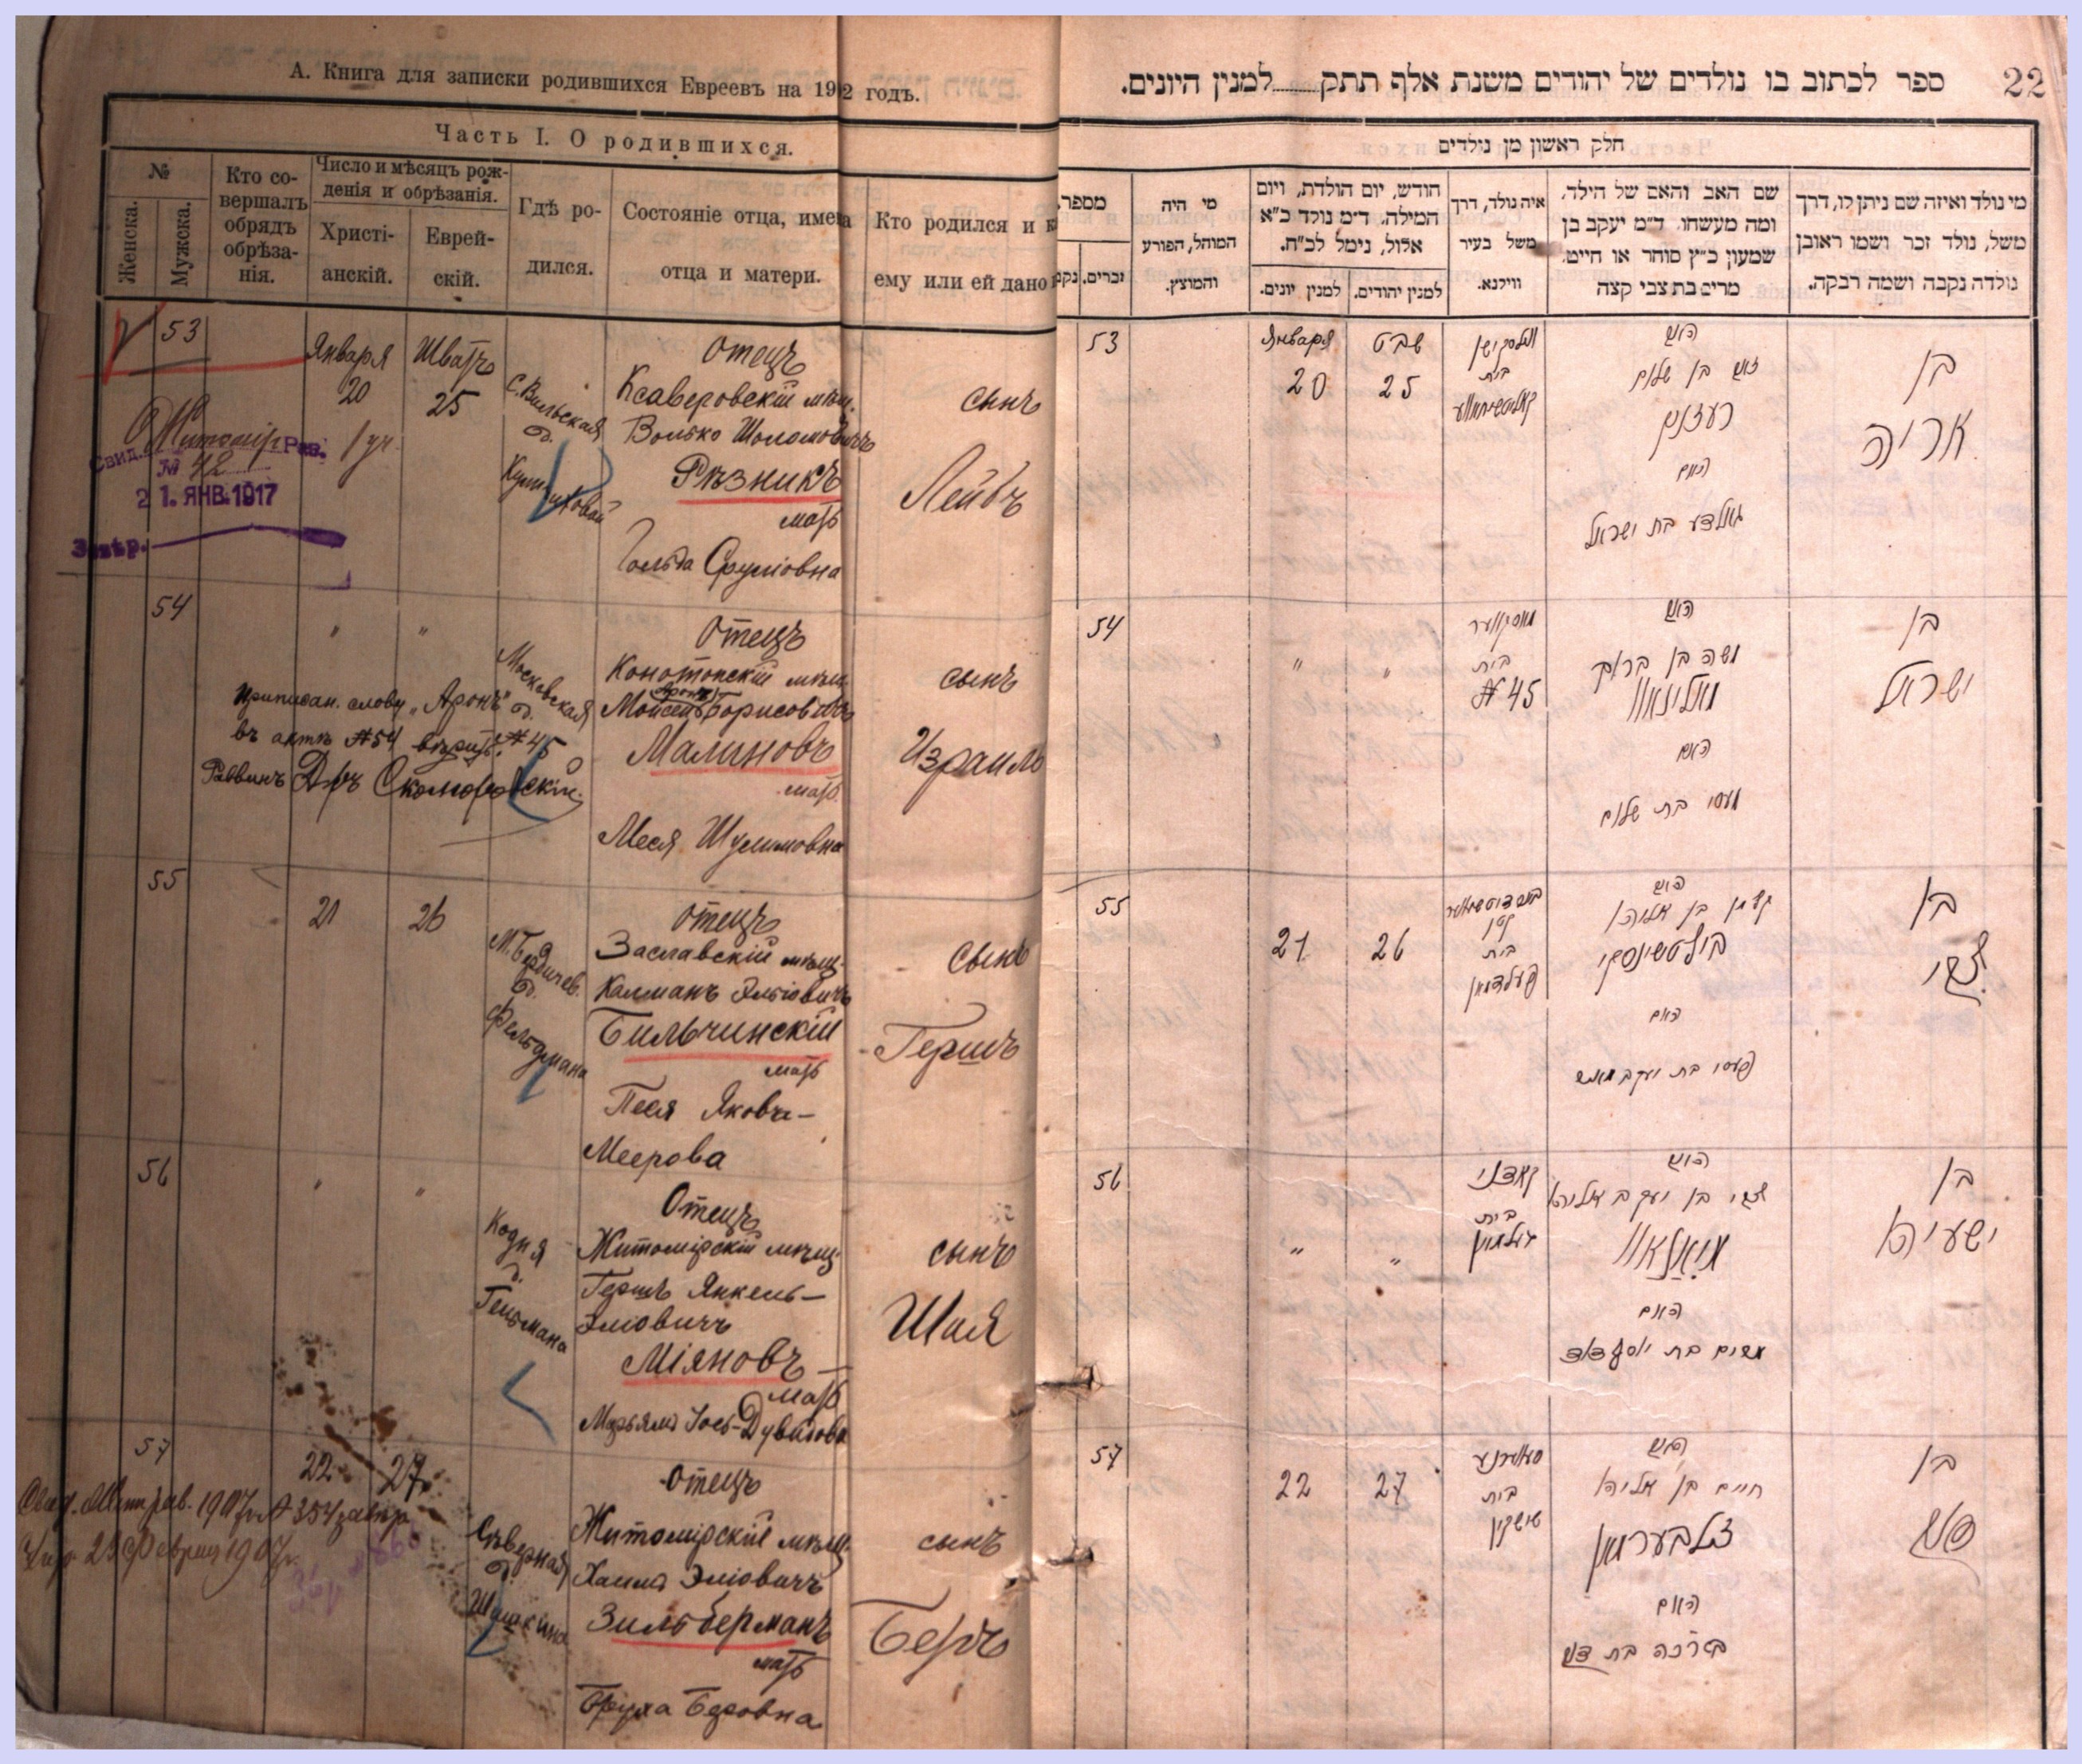 А. Книга для записки родившихся Евреевъ на 1902 годъ.
Часть I. О родившихся.
№
Женска.
Мужска.
Кто со-
вершалъ
обрядъ
обрѣза-
нія.
Число и мѣсяцъ рож-
денія и обрѣзанія.
Христі-
анскій.
Еврей-
скій.
Гдѣ ро-
дился.
Состояніе отца, имена
отца и матери.
Кто родился и к
ему или ей дано
53
Января
20
Шватъ
25
С. Вильская
д.
Отецъ
Ксаверовскій мѣщ.
Волько Шоломовичъ
Рѣзникъ
мать
Гольда Сруліовна
сынъ
Лейбъ
Свид. Житомір. Рав.
№ 42
21. ЯНВ. 1917
54
"
"
Московская
д.
№ 45
Отецъ
Конотопскій мѣщ.
Аронъ
Мойсей Борисовичъ
Малиновъ
мать
Меся Шулимовна
сынъ
Израиль
Приписан. слову „Аронъ"
въ актѣ № 54 вѣрить.
Раввинъ Д-ръ Скоморовскій
55
21
26
М. Бердичев.
д.
Фельдмана
Отецъ
Заславскій мѣщ.
Калманъ Эліовичъ
Бильчинскій
мать
Песя Яковъ-
Меерова
сынъ
Гершъ
56
"
"
Кодня
д.
Гельмана
Отецъ
Житомірскій мѣщ.
Гершъ Янкель-
Эліовичъ
Міяновъ
мать
Марьямъ Іось-Дувидова
сынъ
Шая
57
22
27
Сѣверная
д.
Шишкина
Отецъ
Житомірскій мѣщ.
Хаимъ Эліовичъ
Зильберманъ
мать
Бруха Беровна
сынъ
Беръ
22
ספר לכתוב בו נולדים של יהודים משנת אלף תתק......למנין היונים.
חלק ראשון מן נולדים
מספר.
זכרים.
נקב
מי היה
המוהל, הפורע
והמוצץ.
חודש, יום הולדת, ויום
המילה. ד״מ נולד כ״א
אלול, נימל לכ״ח.
למנין יונים.
למנין יהודים.
איה נולד, דרך
משל בעיר
ווילנא.
שם האב והאם של הילד.
ומה מעשהו. ד״מ יעקב בן
שמעון כ״ץ סוחר או חייט.
מרים בת צבי קצה
מי נולד ואיזה שם ניתן לו, דרך
משל, נולד זכר ושמו ראובן
נולדה נקבה ושמה רבקה.
53
Января
20
שבט
25
בית
האב
זאב בן שלום
רעזניק
האם
גאלדע בת ישראל
בן
אריה
54
"
"
מאסקווער
בית
№ 45
האב
משה בן ברוך
מאלינאוו
האם
מעסי בת שלום
בן
ישראל
55
21
26
קטן
בית
פעלדמאן
האב
קלמן בן אליהו
בילטשינסקי
האם
פעסי בת יעקב מאיר
בן
צבי
56
"
"
קאדני
בית
געלמאן
האב
צבי בן יעקב אליהו
מיאנאוו
האם
מרים בת יוסף דוד
בן
ישעיה
57
22
27
בית
שישקין
האב
חיים בן אליהו
זילבערמאן
האם
ברכה בת דוב
בן
דוב